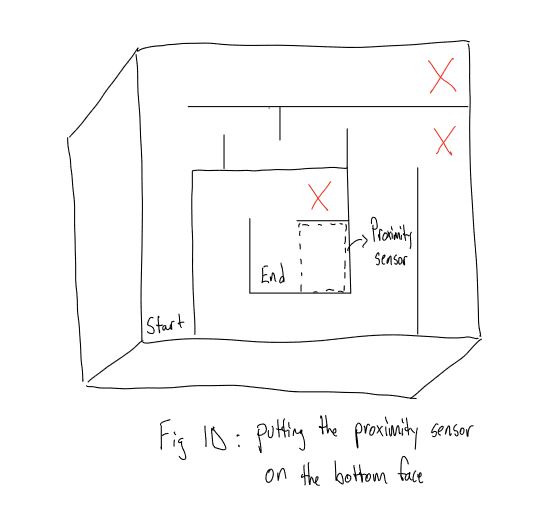 X
X
X
Proximity
sensor
End
Start
Fig 1D: putting the proximity sensor
on the bottom face